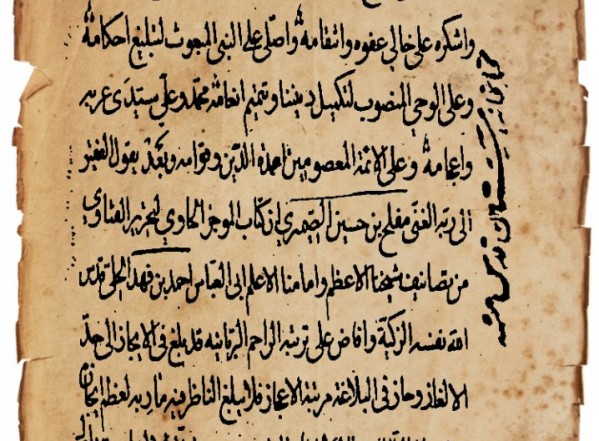 واشكره على حالي عفوه وانتقامه واصلى على النبى المبعوث لتبليغ احكامه
وعلى الوحي المنصوب لتكميل ديننا وتتميم انعامه محمد وعلى سيدى عربه
واعجامه وعلى الائمة المعصومين اعمدة الدين وقوامه وبعد يقول الفقير
الى ربه الغنى مفلح بن حسين الصيمري ان كتاب الموجز الحاوي لتحرير الفتاوي
من تصانيف شيخنا الاعظم وامامنا الاعلم ابى العباس احمد بن فهد الحلى قدس
الله نفسه الزكية وافاض على تربته المراحم الربانيه قد بلغ فى الايجاز الى حد
الالغاز وحاز فى البلاغة مرتبة الاعجاز فلا يبلغ الناظر فيه مآربه لعظم ايجازه
كتابخانه قدس